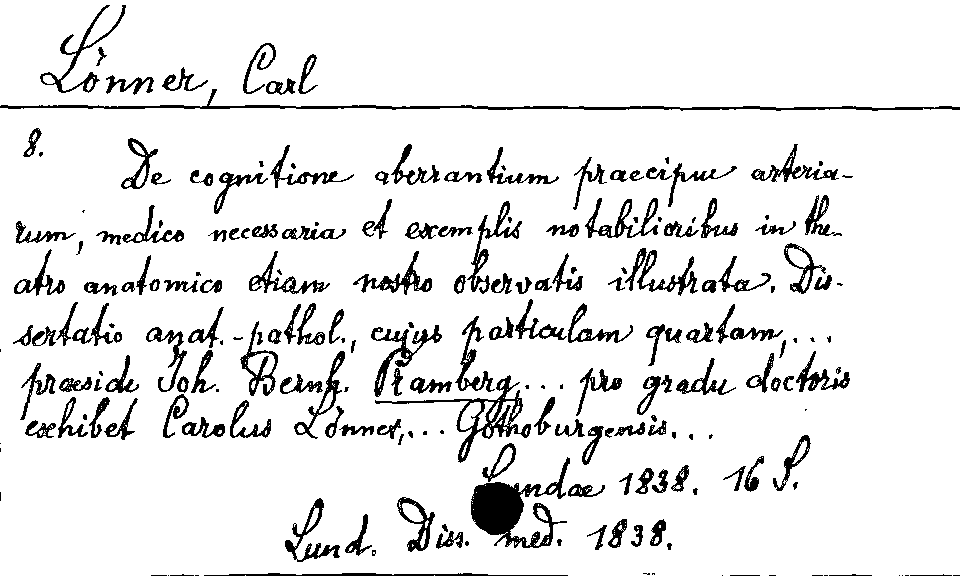 Lönner, Carl
8.
De cognitione aberrantium praecipue arteria-
rum, medico necessaria et exemplis notabilioribus in the-
atro anatomico etiam nostro observatis illustrata. Dis-
sertatio anat.-pathol., cujus particulam quartam,...
praeside Joh. Bernh. Pramberg,... pro gradu doctoris
exhibet Carolus Lönner,... Gothoburgensis...
Lundae 1838. 16 S.
Lund. Diss. med. 1838.